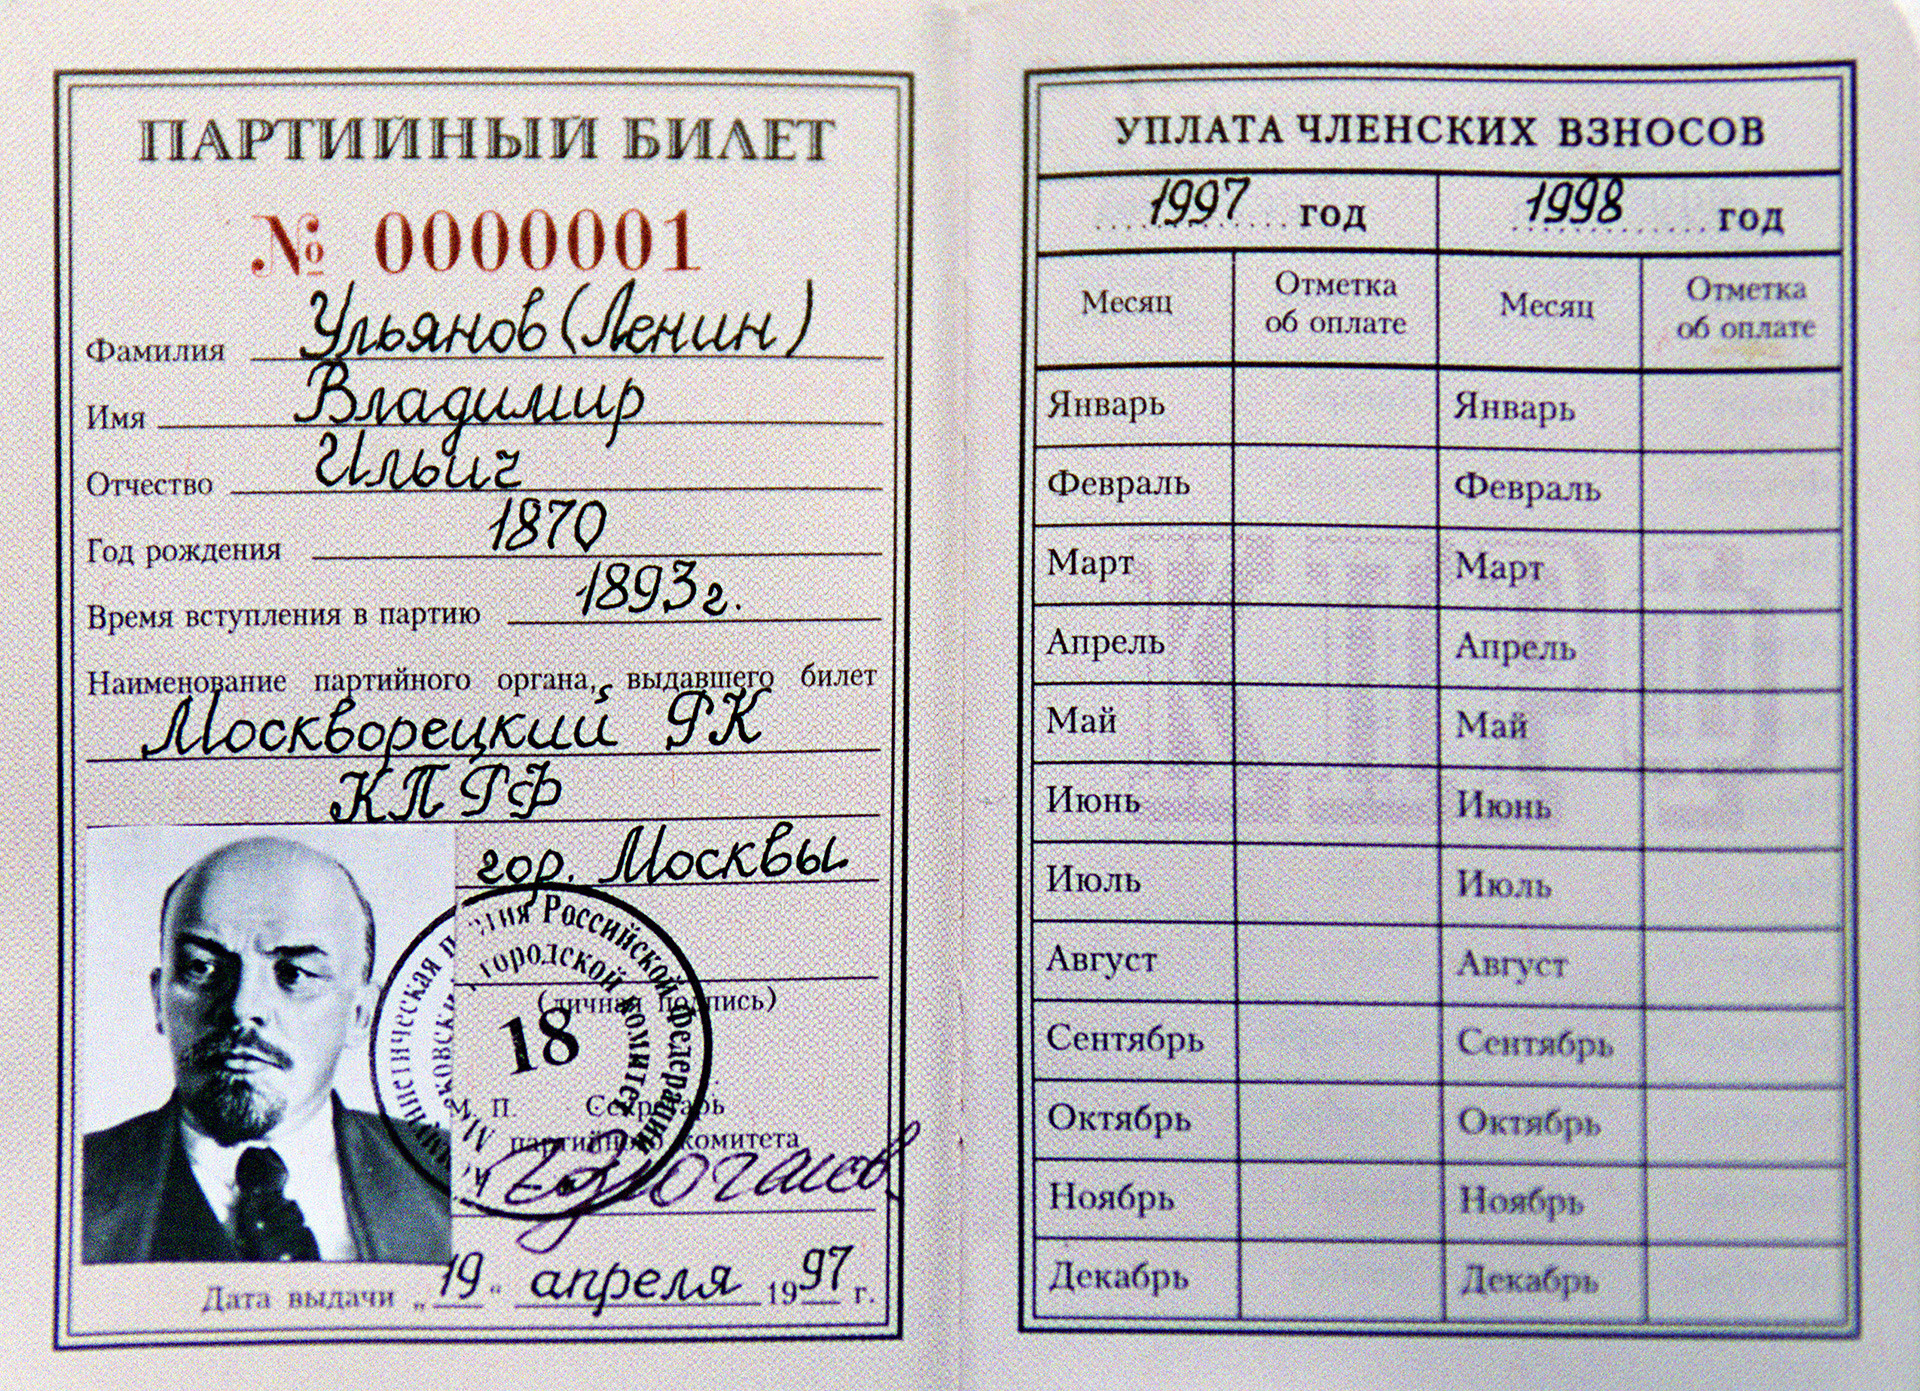 ПАРТИЙНЫЙ БИЛЕТ
№ 0000001
Фамилия Ульянов (Ленин)
Имя Владимир
Отчество Ильич
Год рождения 1870
Время вступления в партию 1893 г.
Наименование партийного органа, выдавшего билет
Москворецкий РК
КПРФ
гор. Москвы
(личная подпись)
Российской Федерации
городской комитет
18
М. П. Секретарь
партийного комитета
Дата выдачи „19“ апреля 1997 г.
УПЛАТА ЧЛЕНСКИХ ВЗНОСОВ
1997 год 1998 год
Месяц Отметка об оплате Месяц Отметка об оплате
Январь Январь
Февраль Февраль
Март Март
Апрель Апрель
Май Май
Июнь Июнь
Июль Июль
Август Август
Сентябрь Сентябрь
Октябрь Октябрь
Ноябрь Ноябрь
Декабрь Декабрь